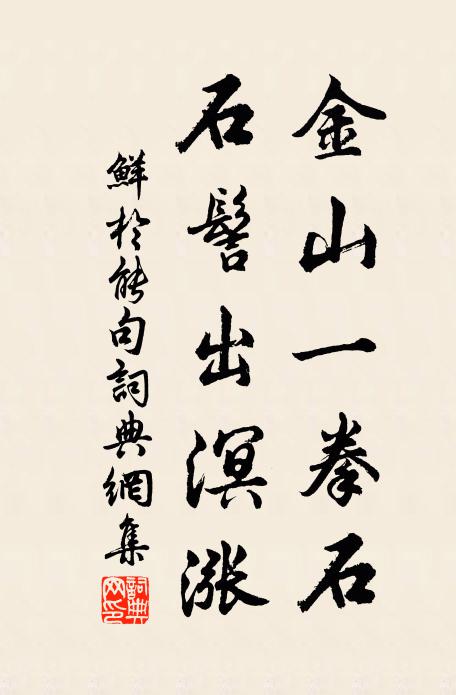 金山一拳石
石髻出溟漲
鮮於能句詞典網集
詞典
网印